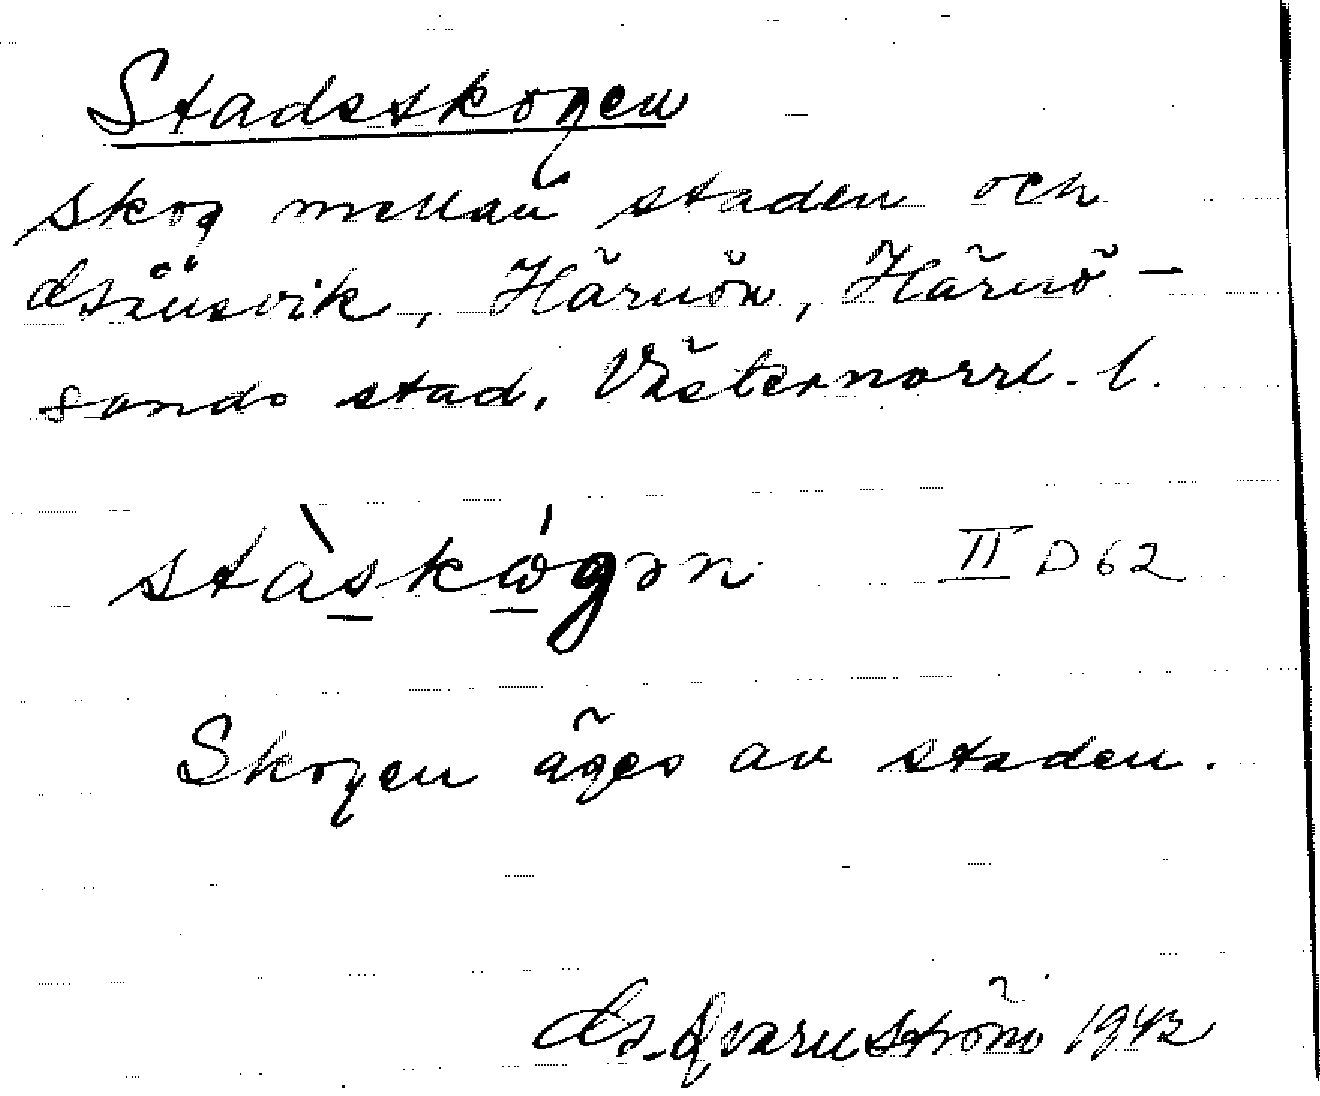 Stadsskogen
skog mellan staden och
Härnön, Härnö-
sands stad, Västernorrl. l.
stàs̠kώ̠gən II D 62
Skogen äges av staden.
G. Qvarnström 1942